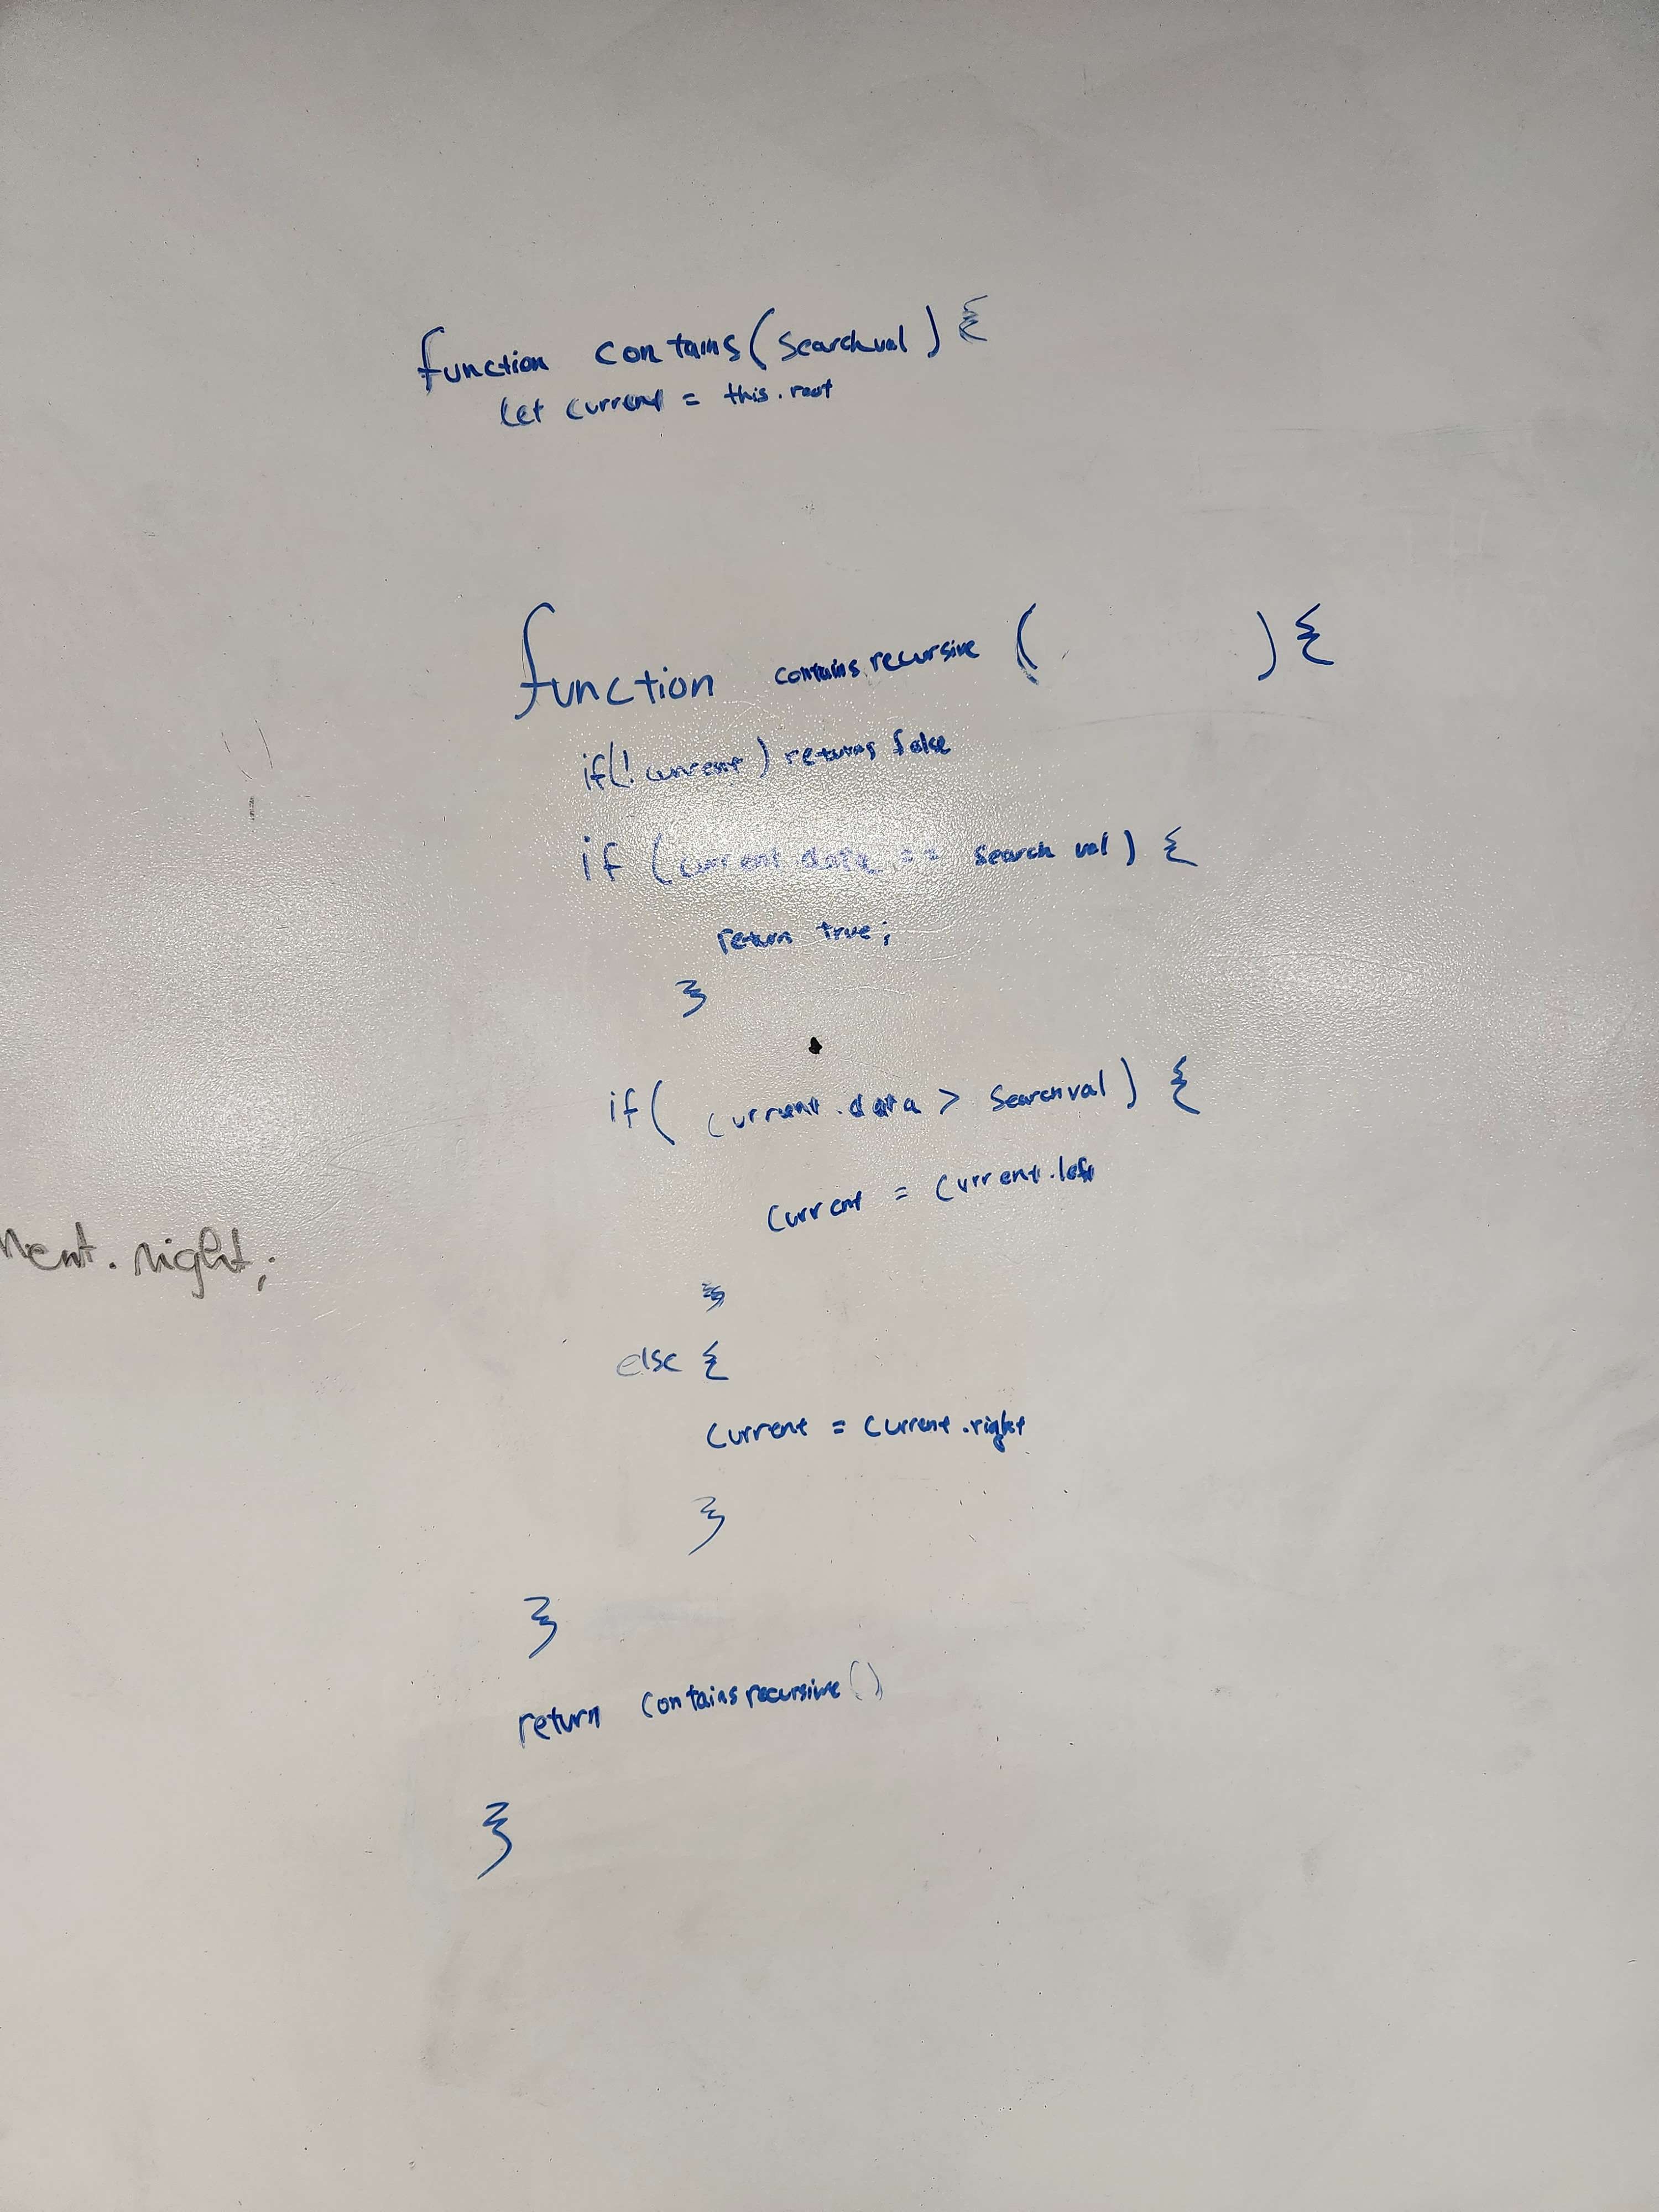 function contains(searchval) {
let current = this.root
function containsrecursive ( ) {
if(! current) returns false
if (current.data == search val) {
return true;
}
if( current.data > Searchval) {
current = current.left
}
ment.right;
else {
current = current.right
}
}
return containsrecursive ()
}